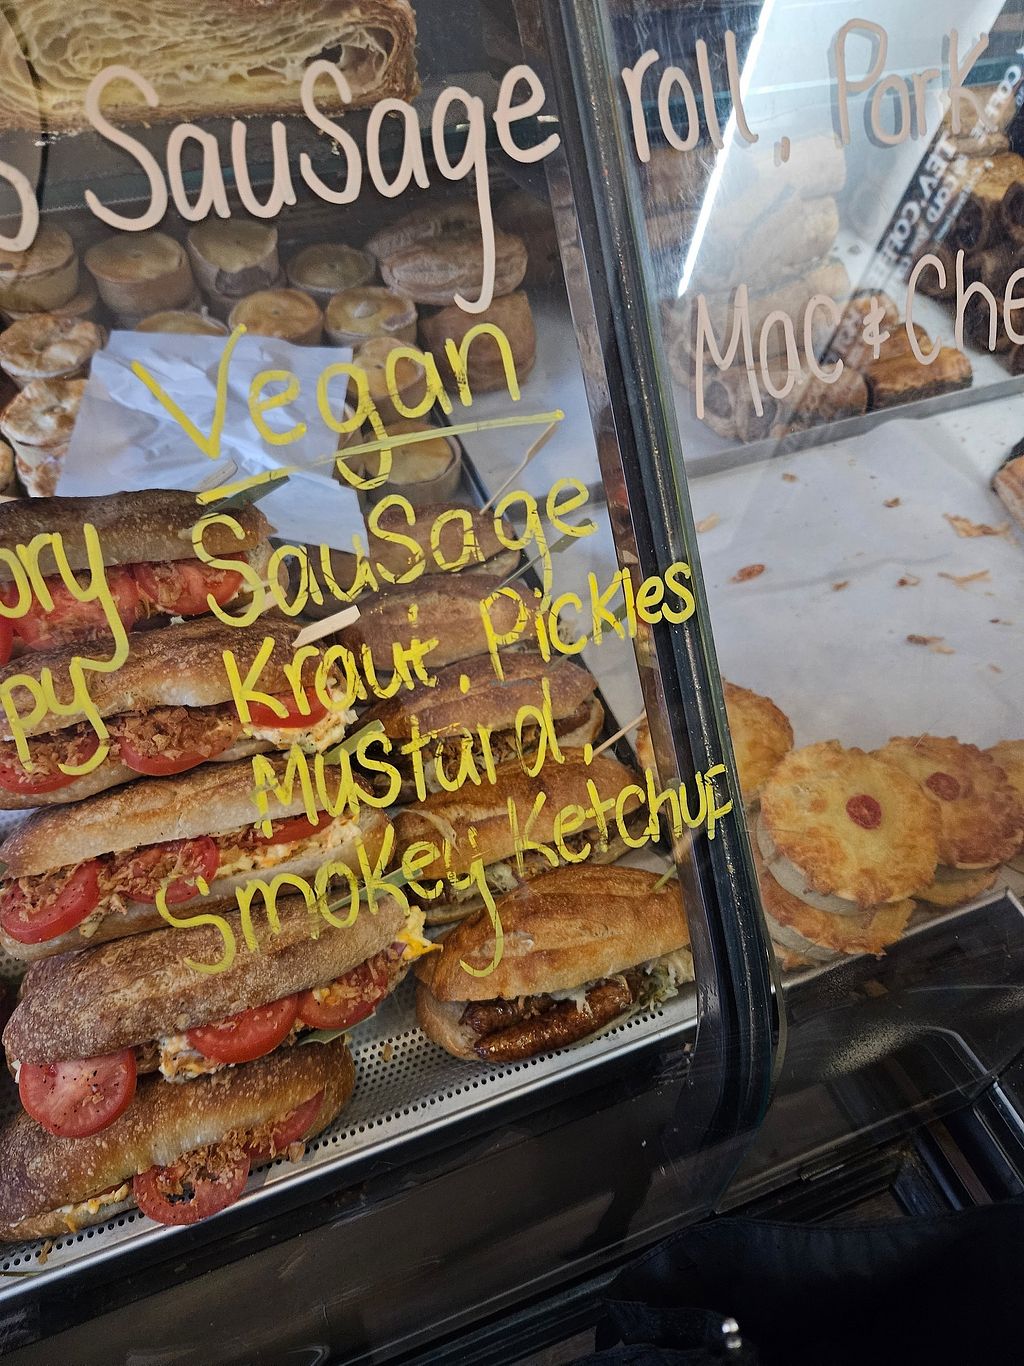 s Sausage roll, Pork
Mac & Che
Vegan
ory Sausage
Kraut, Pickles
py Mustard,
Smokey Ketchup